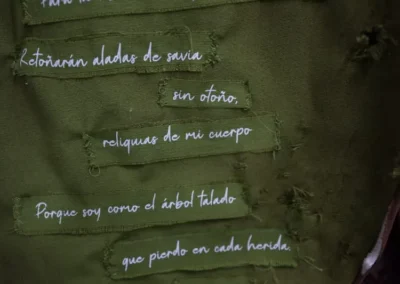 Retoñarán aladas de savia
sin otoño,
reliquias de mi cuerpo
Porque soy como el árbol talado
que pierdo en cada herida